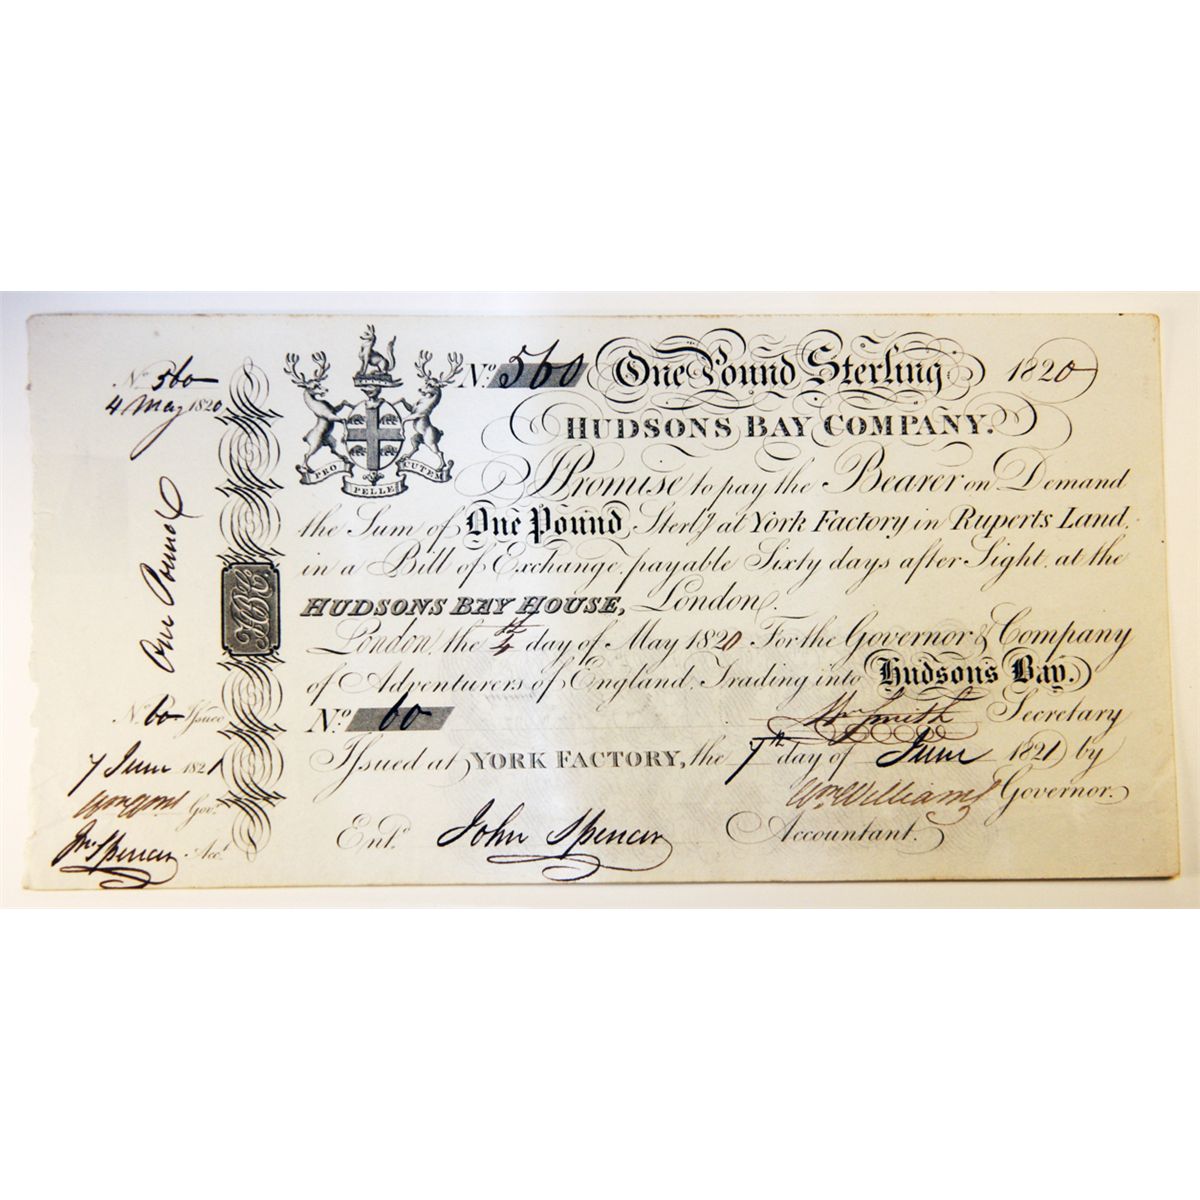 No. 560
4 May 1820
One Pound
HBC
No. 60 Issued
7 June 1821
Govr.
Jn. Spencer Acct.
PRO PELLE CUTEM
No. 560 One Pound Sterling 1820
HUDSONS BAY COMPANY.
I Promise to pay the Bearer on Demand
the Sum of One Pound Sterlg at York Factory in Ruperts Land,
in a Bill of Exchange, payable Sixty days after Sight, at the
HUDSONS BAY HOUSE, London.
London, the 4th day of May 1820 For the Governor & Company
of Adventurers of England, Trading into Hudsons Bay.
No. 60
Wm Smith Secretary
Issued at YORK FACTORY, the 7th day of June 1821 by
Wm Williams Governor.
Entd. John Spencer Accountant.